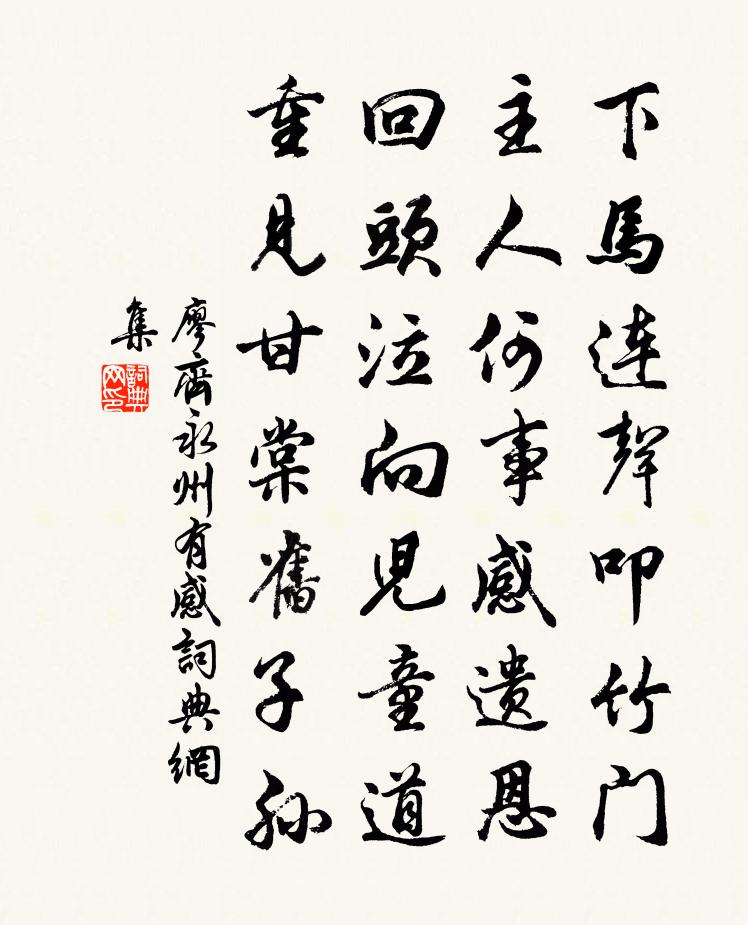 下馬連聲叩竹门
主人何事感遗恩
回頭泣向児童道
重見甘棠舊子孫
廖齊永州有感詞典網
集
詞典
网印